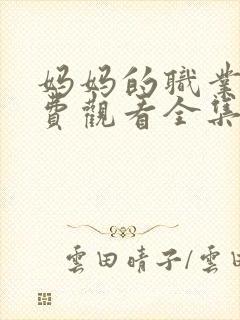 妈妈的職業
費觀看全集
雲田晴子/雲田